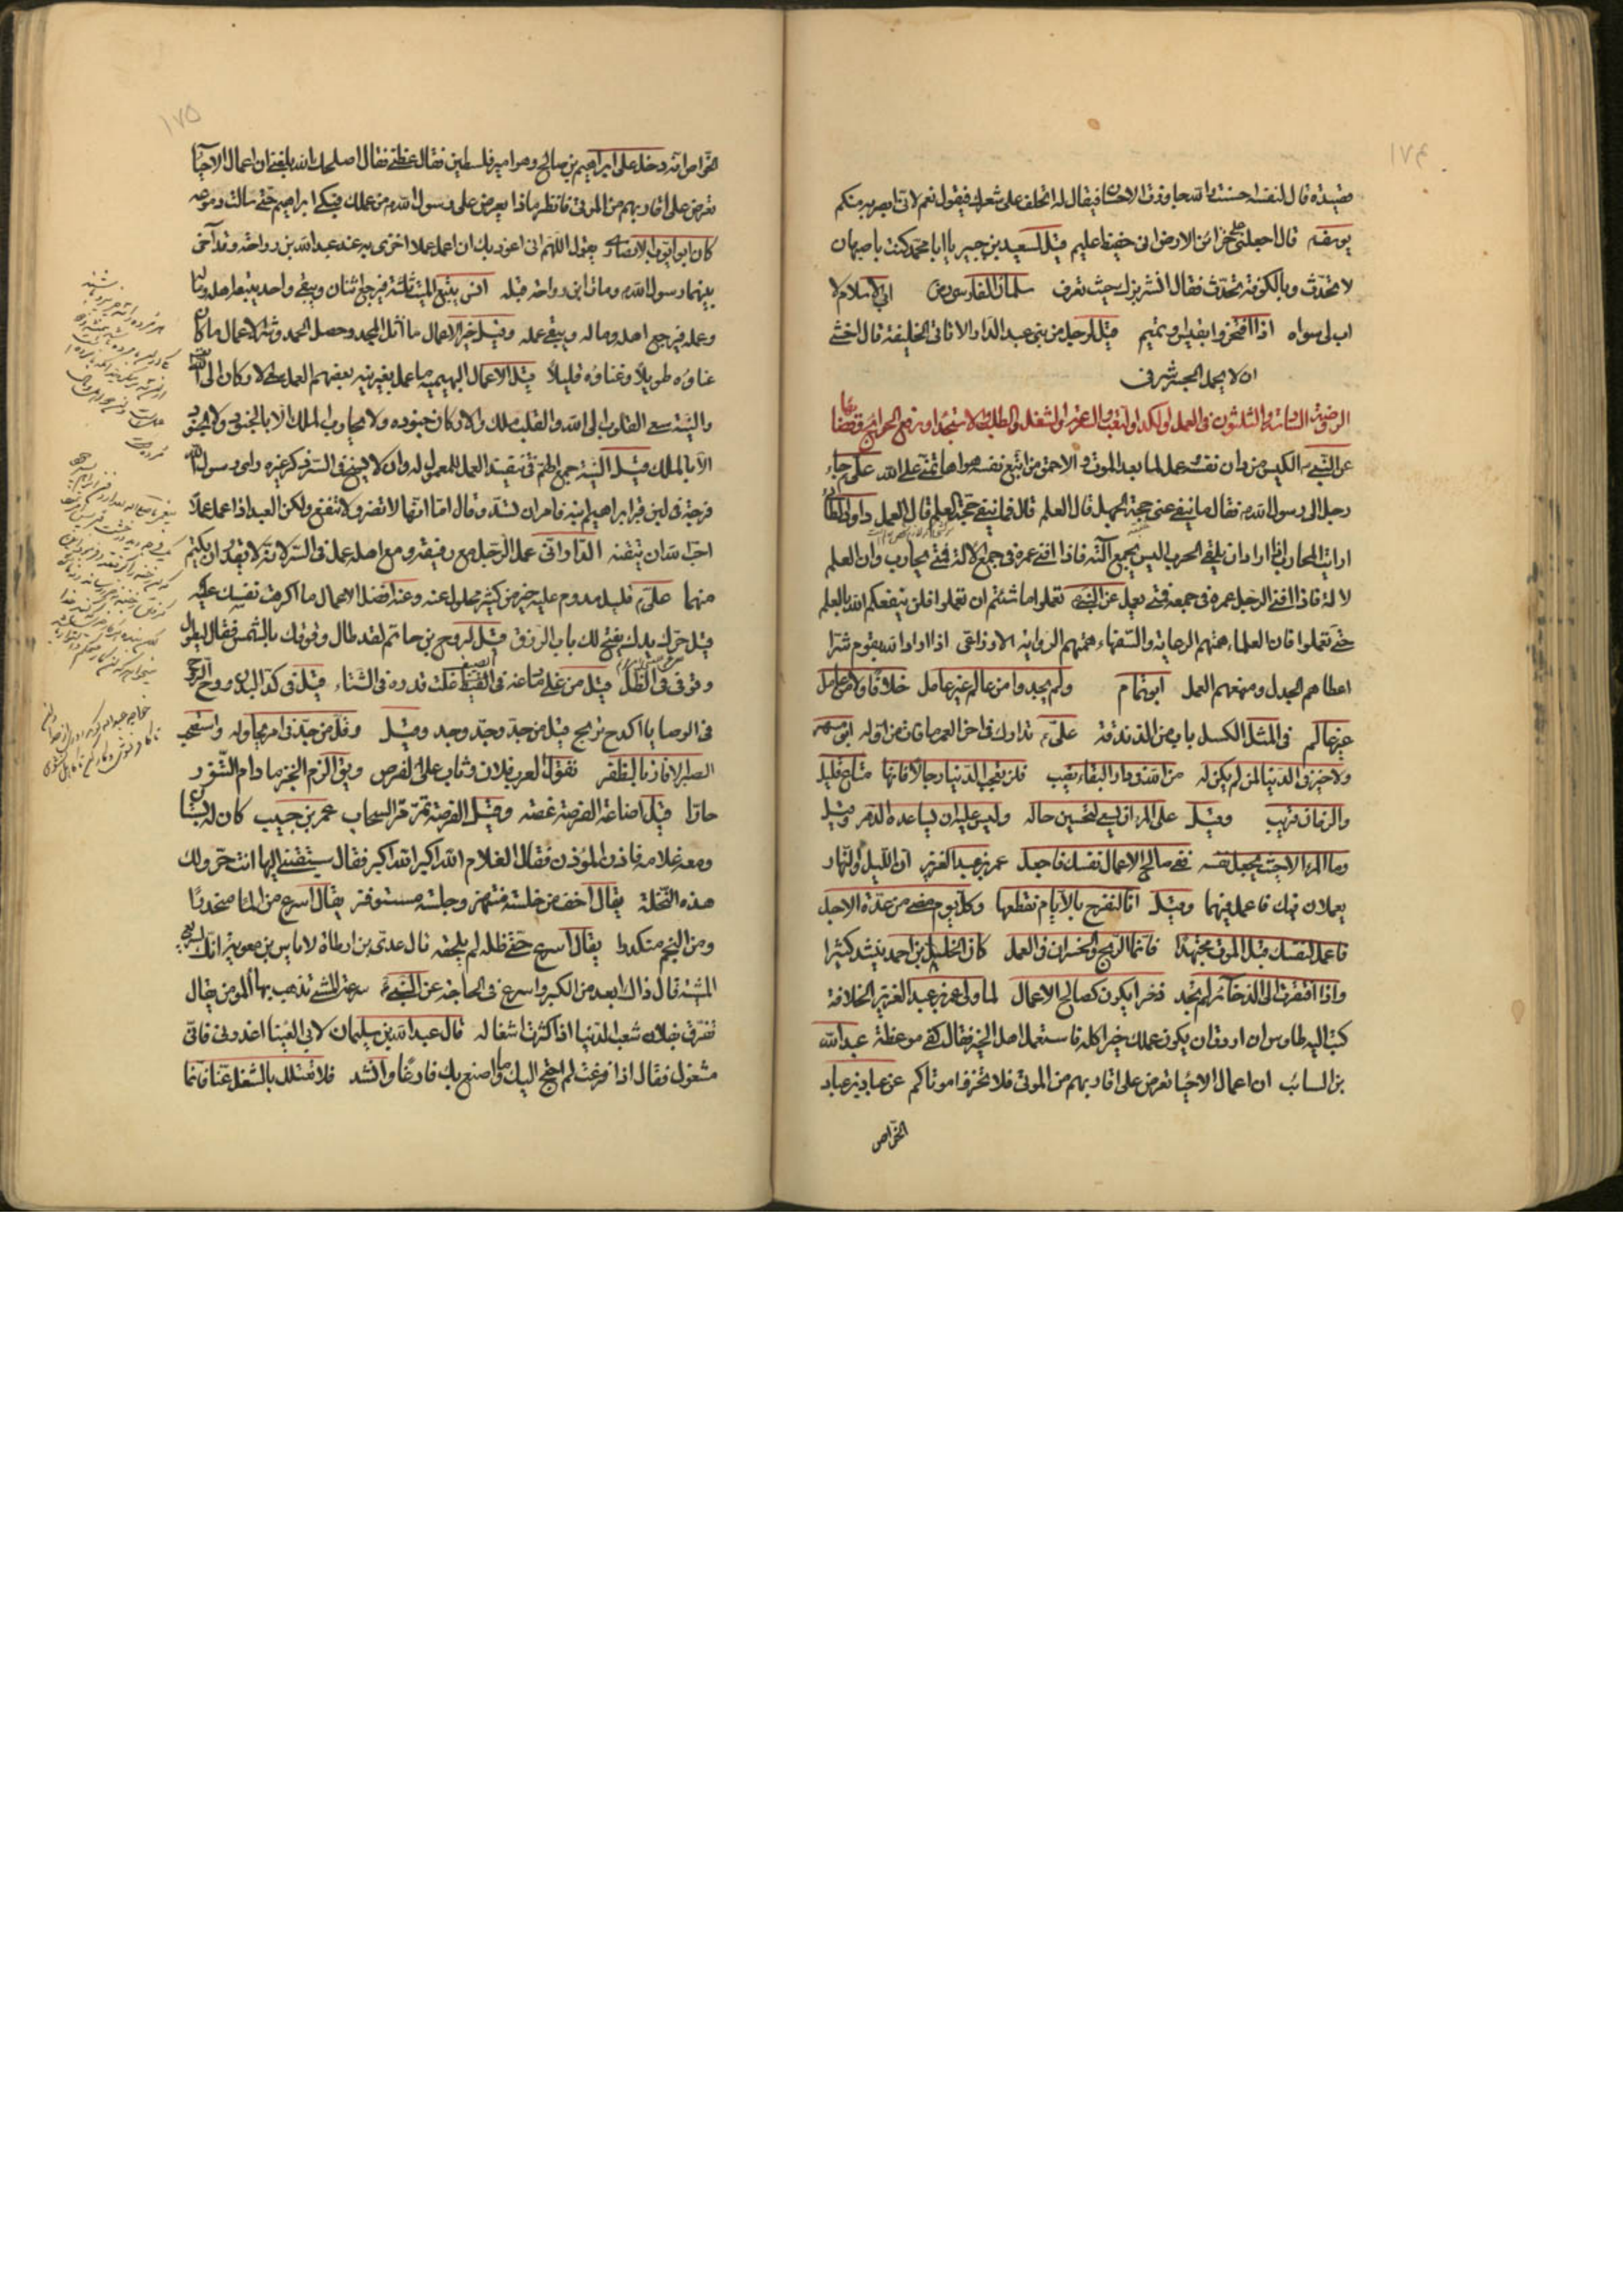 ١٧٤
قصيدة قال لنفسه احسنت والله جاوزت الاحسان فيقال له اتحلف على شعرك فيقول نعم لاني ابصر به منكم
يوسف م قال اجعلني على خزائن الارض اني حفيظ عليم قيل لسعيد بن جبير يا ابا محمد كنت باصبهان
لا تحدث وبالكوفة تحدث فقال انشر بزك حيث تعرف سلمان الفارسي رض ابي الاسلام لا
اب لي سواه اذا افتخروا بقيس او تميم قيل لرجل من بني عبد الدار الا تاتي الخليفة قال اخشى
ان لا يحمل الجسر شرفي
الروضة السادسة والثلثون في العمل والكد والتعب والشغل والطلب والاستجداء ورفع الحوائج وقضائها
عن النبي ص الكيس من دان نفسه وعمل لما بعد الموت والاحمق من اتبع نفسه هواها وتمنى على الله علي جاء
رجل الى رسول الله ص فقال ما ينفي عني حجة الجهل قال العلم قال فما ينفي عني حجة العلم قال العمل داود الطائي
ارايت المحارب اذا اراد ان يلقى الحرب اليس يجمع آلته فاذا افنى عمره في جمع الآلة فمتى يحارب وان العلم
آلة فاذا افنى الرجل عمره في جمعه فمتى يعمل عن النبي ص تعلموا ما شئتم ان تعلموا فلن ينفعكم الله بالعلم
حتى تعملوا فان العلماء همتهم الرعاية والسفهاء همتهم الرواية الاوزاعي اذا اراد الله بقوم شرا
اعطاهم الجدل ومنعهم العمل ابو تمام ولم يجدوا من عالم غير عامل خلاقا ولا من عامل
غير عالم في المثل الكسل باب من الزندقة علي م تدارك في اخر العمر ما فات من اوله ابن مسهر
ولا خير في الدنيا لمن لم يكن له من الله في دار البقاء نصيب فان تعجب الدنيا رجالا فانها متاع قليل
والزوال قريب وقيل على المرء ان يسعى لتحسين حاله وليس عليه ان يساعده الدهر وقيل
وما المرء الا حيث يجعل نفسه ففي صالح الاعمال نفسك فاجعل عمر بن عبد العزيز ان الليل والنهار
يعملان فيك فاعمل فيهما وقيل انا لنفرح بالايام نقطعها وكل يوم مضى من عدة الاجل
فاعمل لنفسك قبل الموت مجتهدا فانما الربح والخسران في العمل كان الخليل بن احمد ينشد كثيرا
واذا افتقرت الى الذخائر لم تجد ذخرا يكون كصالح الاعمال لما ولي عمر بن عبد العزيز الخلافة
كتب اليه طاوس ان اردت ان يكون عملك خيرا كله فاستعمل اهل الخير فقال كفى موعظة عبد الله
بن السائب ان اعمال الاحياء تعرض على اقاربهم من الموتى فلا تخزوا موتاكم عن عباد بن عباد
الخواص
١٧٥
الخواص انه دخل على ابراهيم بن صالح وهو امير فلسطين فقال عظني فقال اصلحك الله بلغني ان اعمال الاحياء
تعرض على اقاربهم من الموتى فانظر ماذا يعرض على رسول الله من عملك فبكى ابراهيم حتى سالت دموعه
كان ابو ايوب الانصاري يقول اللهم اني اعوذ بك ان اعمل عملا اخزى به عند عبد الله بن رواحة وقد آخى
بينهما رسول الله ص ومات ابن رواحة قبله انس يتبع الميت ثلثة فيرجع اثنان ويبقى واحد يتبعه اهله وماله
وعمله فيرجع اهله وماله ويبقى عمله وقيل خير الاعمال ما اثل المجد وحصل الحمد وشر الاعمال ما كان
عناؤه طويلا وغناؤه قليلا قيل الاعمال البهيمية ما عمل بغير نية بعضهم العمل سعي الاركان الى الله
والنية سعي القلوب الى الله والقلب ملك والاركان جنوده ولا يحارب الملك الا بالجنود ولا الجنود
الا بالملك قيل النية جمع الهم في تنفيذ العمل للمعمول له وان لا يسنح في السر ذكر غيره راى رسول الله
فرجة في لبن قبر ابراهيم ابنه فامر ان تسد وقال اما انها لا تضر ولا تنفع ولكن العبد اذا عمل عملا
احب الله ان يتقنه الداراني عمل الرجل مع رفيقه ومع اهله عمل في السر لانه لا يقدر ان يكتم
منهما علي م قليل مدوم عليه خير من كثير مملول عنه وعنه افضل الاعمال ما اكرهت نفسك عليه
قيل حرك يدك يفتح لك باب الرزق قيل لروح بن حاتم لقد طال وقوفك بالشمس فقال ليطول
وقوفي في الظل قيل من غلى دماغه في القيظ غلت قدره في الشتاء قيل في كد البدن روح الروح
في الوصايا اكدح تربح قيل من جد وجد وجد وقيل وقل من جد في امر يحاوله واستصحب
الصبر الا فاز بالظفر تقول العرب فلان وثاب على الفرص ويق الزم الخبز ما دام التنور
حارا قيل اضاعة الفرصة غصة وقيل الفرصة تمر مر السحاب عمر بن حبيب كان له بستان
ومعه غلامه فاذن المؤذن فقال الغلام الله اكبر الله اكبر فقال سبقتني اليها انت حر ولك
هذه النخلة يقال اخف من خلسة منتهز وجلسة مستوفز يقال اسرع من الماء منحدرا
ومن النجم منكدرا يقال اسرع حتى ظله لم يلحقه قال عدي بن ارطاة لاياس بن معوية انك لسريع
المشية قال ذاك ابعد من الكبر واسرع في الحاجة عن النبي ص سرعة المشي تذهب ببهاء المؤمن يقال
تفرق بفلان شعب الدنيا اذا كثرت اشغاله قال عبد الله بن سليمان لابي العيناء اعذرني فاني
مشغول فقال اذا فرغت لم احتج اليك وما اصنع بك فارغا وانشد فلا تعتلل بالشغل عنا فانما